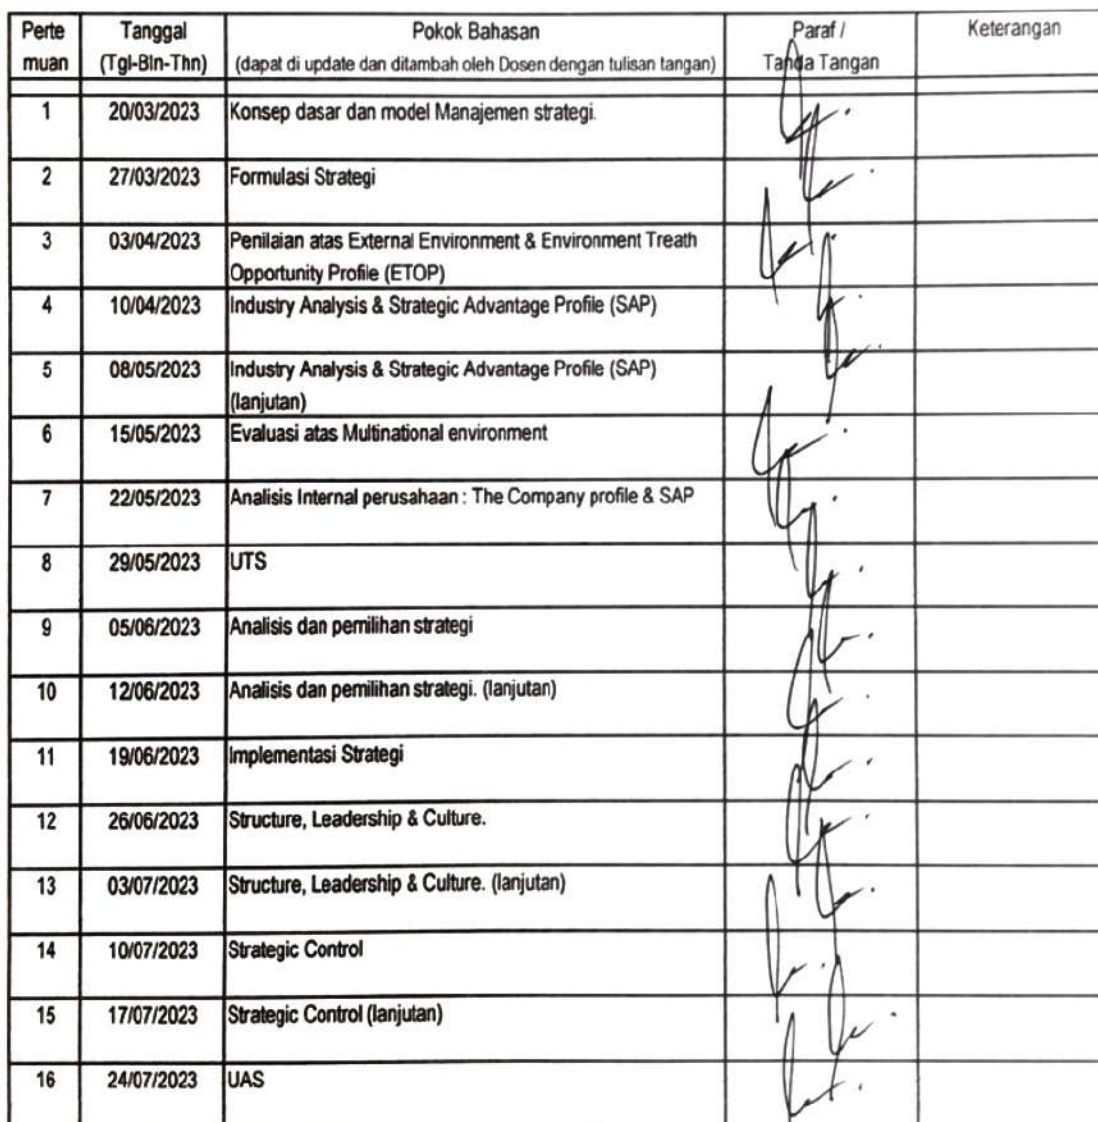 Perte Tanggal Pokok Bahasan Paraf / Keterangan
muan (Tgl-Bln-Thn) (dapat di update dan ditambah oleh Dosen dengan tulisan tangan) Tanda Tangan
1 20/03/2023 Konsep dasar dan model Manajemen strategi.
2 27/03/2023 Formulasi Strategi
3 03/04/2023 Penilaian atas External Environment & Environment Treath
Opportunity Profile (ETOP)
4 10/04/2023 Industry Analysis & Strategic Advantage Profile (SAP)
5 08/05/2023 Industry Analysis & Strategic Advantage Profile (SAP)
(lanjutan)
6 15/05/2023 Evaluasi atas Multinational environment
7 22/05/2023 Analisis Internal perusahaan : The Company profile & SAP
8 29/05/2023 UTS
9 05/06/2023 Analisis dan pemilihan strategi
10 12/06/2023 Analisis dan pemilihan strategi. (lanjutan)
11 19/06/2023 Implementasi Strategi
12 26/06/2023 Structure, Leadership & Culture.
13 03/07/2023 Structure, Leadership & Culture. (lanjutan)
14 10/07/2023 Strategic Control
15 17/07/2023 Strategic Control (lanjutan)
16 24/07/2023 UAS